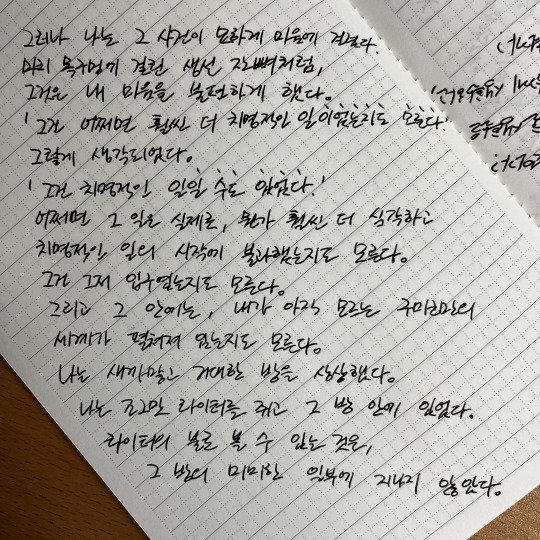 그러나 나는 그 사건이 묘하게 마음에 걸렸다.
마치 목구멍에 걸린 생선 잔뼈처럼,
그것은 내 마음을 불편하게 했다.
'그건 어쩌면 훨씬 더 치명적인 일이었는지도 모른다.'
그렇게 생각되었다.
'그건 치명적인 일일 수도 있었다.'
어쩌면 그 일은 실제로, 뭔가 훨씬 더 심각하고
치명적인 일의 시작에 불과했는지도 모른다.
그건 그저 입구였는지도 모른다.
그리고 그 안에는, 내가 아직 모르는 구미코만의
세계가 펼쳐져 있는지도 모른다.
나는 새까맣고 거대한 방을 상상했다.
나는 조그만 라이터를 쥐고 그 방 안에 있었다.
라이터의 불로 볼 수 있는 것은,
그 방의 미미한 일부에 지나지 않았다.